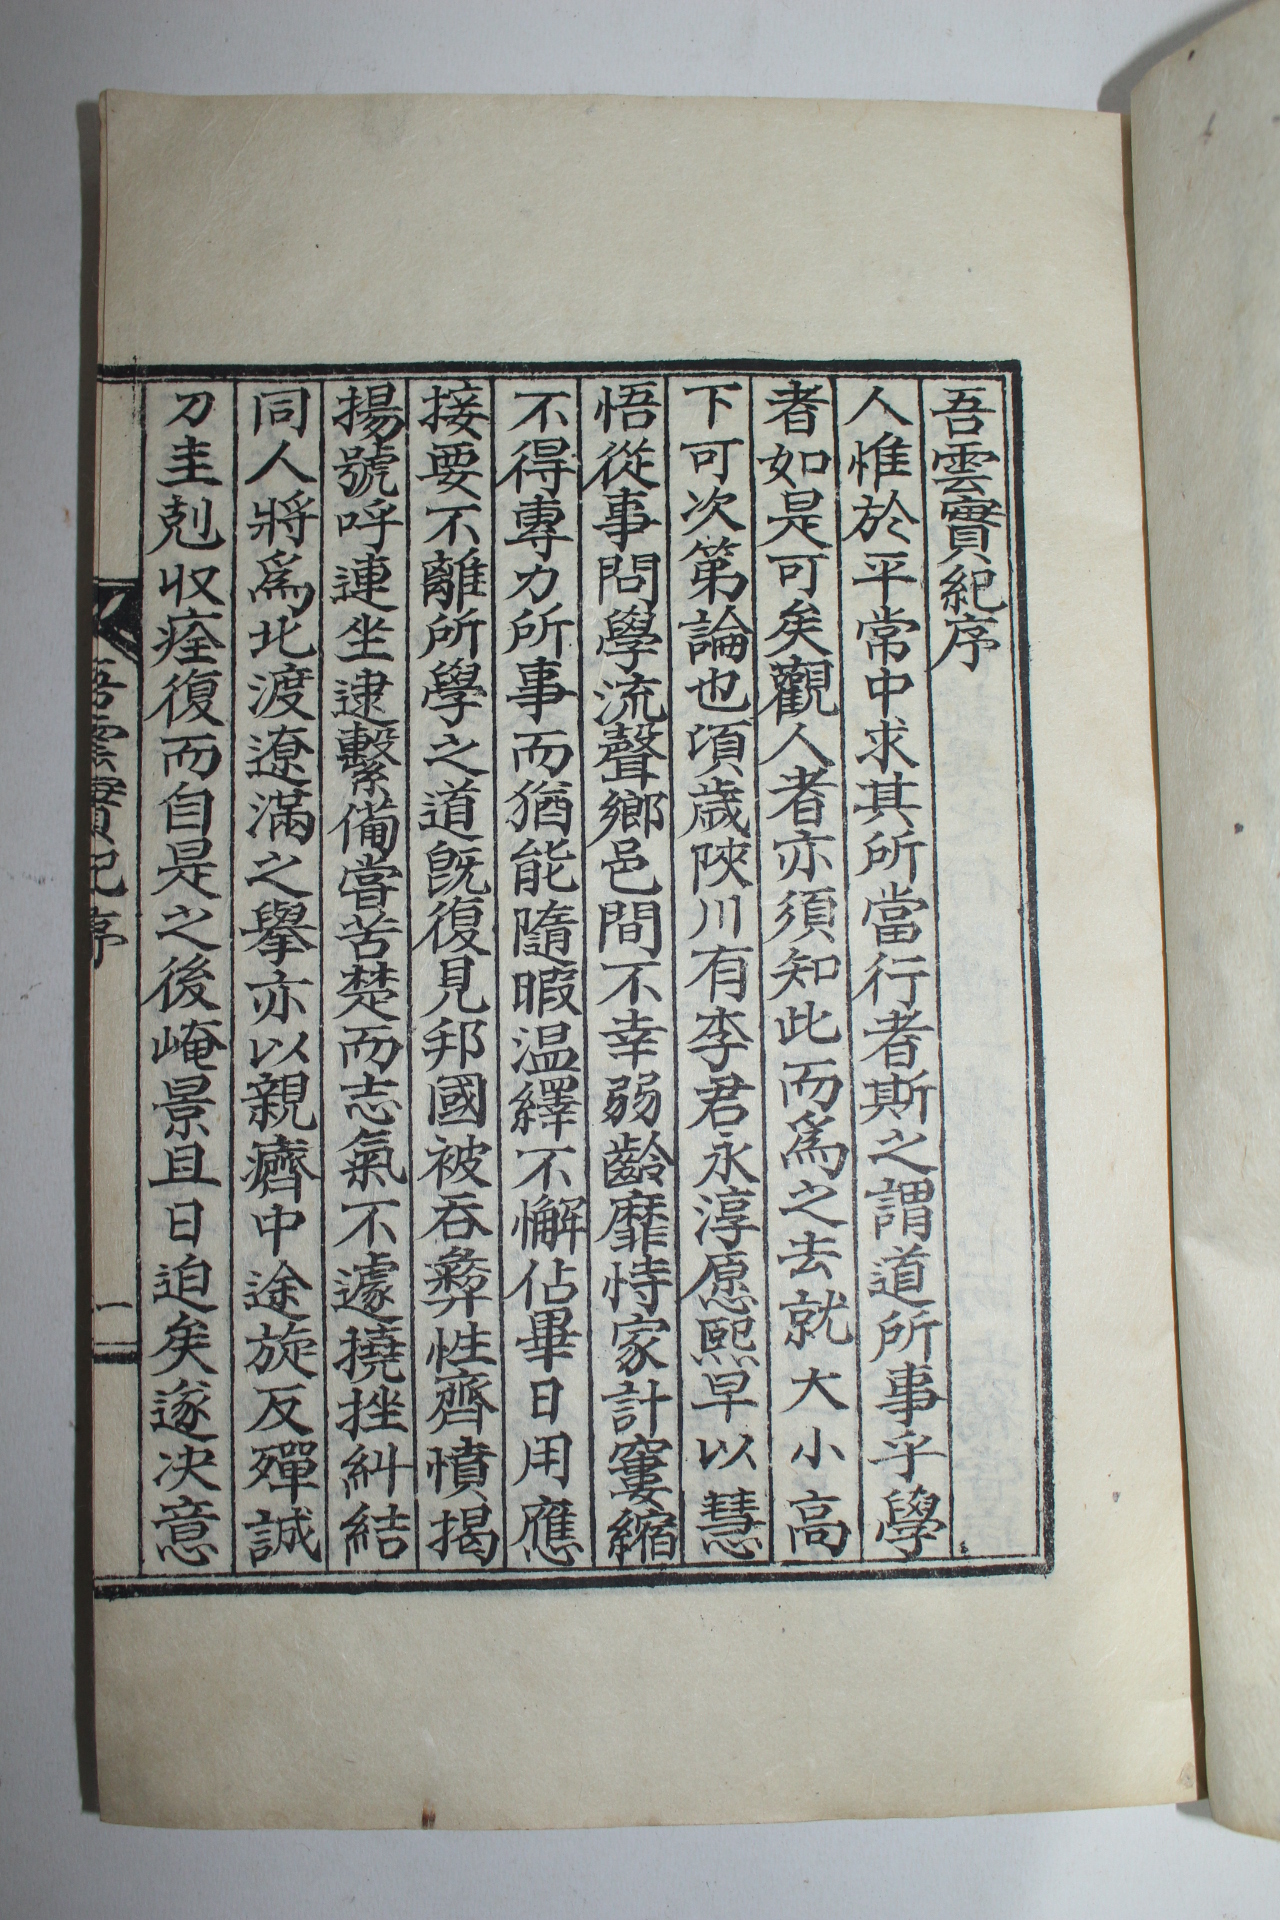 吾雲實紀序
人惟於平常中求其所當行者斯之謂道所事乎學
者如是可矣觀人者亦須知此而爲之去就大小高
下可次第論也頃歲陜川有李君永淳愿熙早以慧
悟從事問學流聲鄉邑間不幸弱齡靡恃家計窶縮
不得專力所事而猶能隨暇温繹不懈佔畢日用應
接要不離所學之道旣復見邦國被吞彜性齊憤揭
揚號呼連坐逮繫備嘗苦楚而志氣不遽撓挫糾結
同人將爲北渡遼滿之擧亦以親癠中途旋反殫誠
刀圭剋收痊復而自是之後崦景且日迫矣遂决意
吾雲實紀序
一